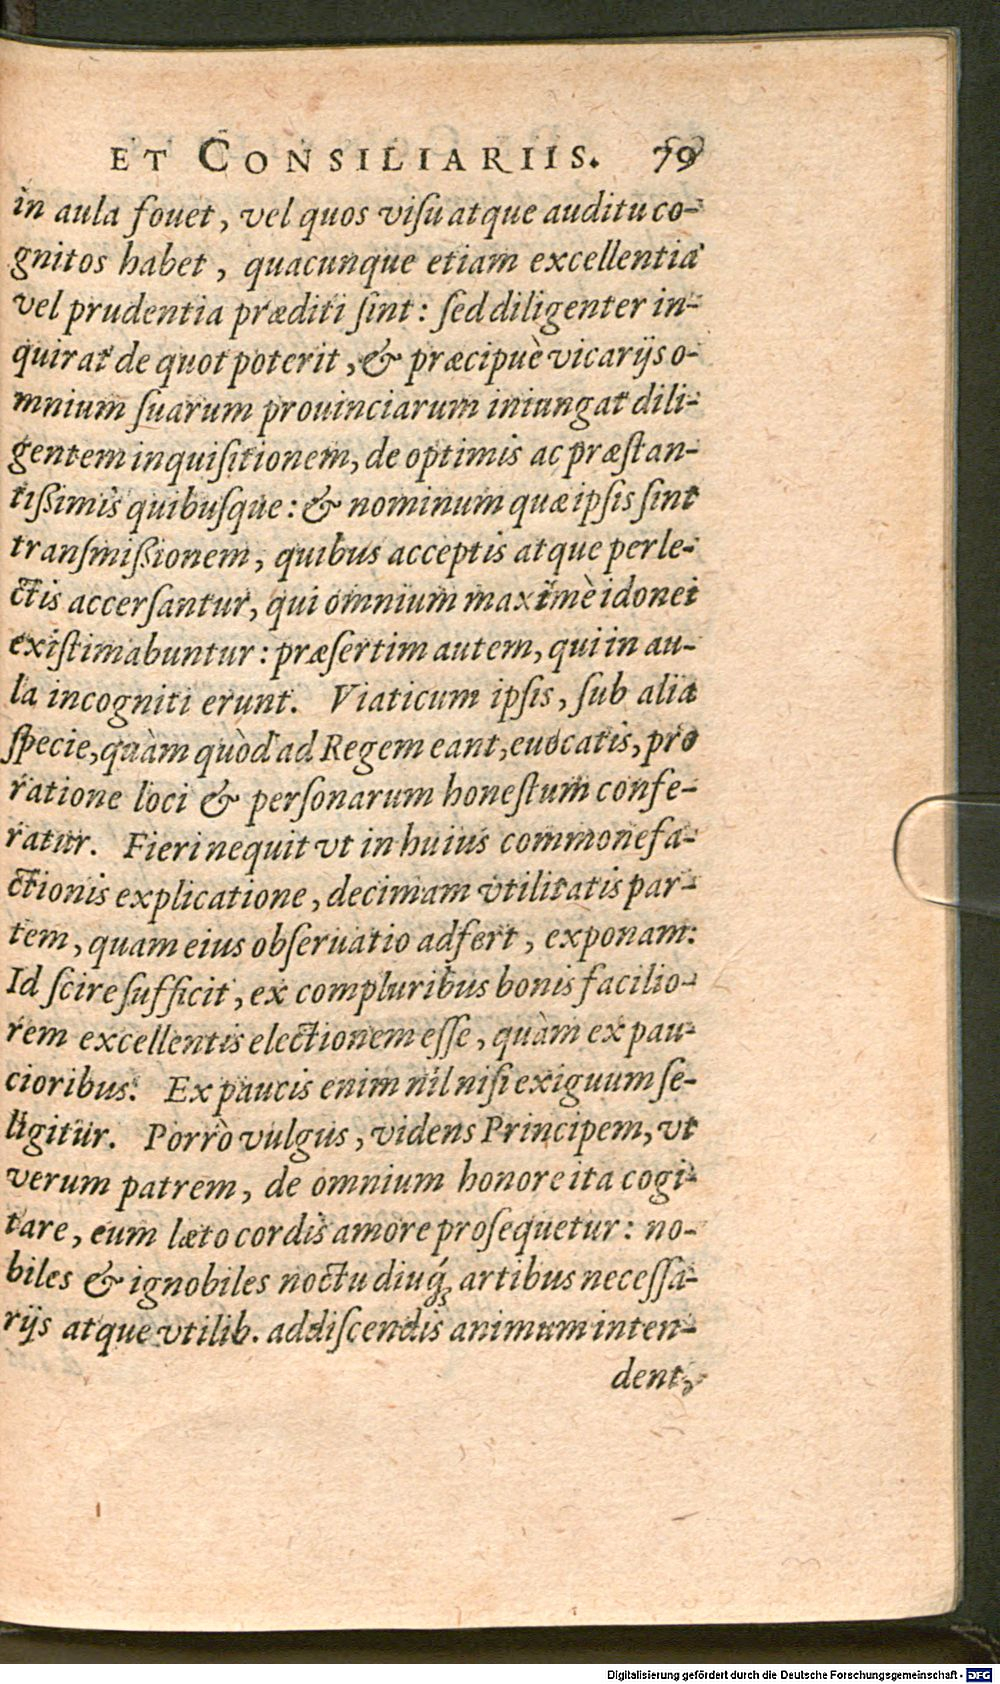 ET CONSILIARIIS. 79
in aula fouet, vel quos viſu atque auditu co-
gnitos habet, quacunque etiam excellentia
vel prudentia præditi ſint: ſed diligenter in-
quirat de quot poterit, & præcipuè vicarijs o-
mnium ſuarum prouinciarum iniungat dili-
gentem inquiſitionem, de optimis ac præſtan-
tiſsimis quibuſque: & nominum quæ ipſis ſint
tranſmiſsionem, quibus acceptis atque perle-
ctis accerſantur, qui omnium maximè idonei
exiſtimabuntur: præſertim autem, qui in au-
la incogniti erunt. Viaticum ipſis, ſub alia
ſpecie, quàm quòd ad Regem eant, euocatis, pro
ratione loci & perſonarum honeſtum confe-
ratur. Fieri nequit vt in huius commonefa-
ctionis explicatione, decimam vtilitatis par-
tem, quam eius obſeruatio adfert, exponam:
Id ſcire ſufficit, ex compluribus bonis facilio-
rem excellentis electionem eſſe, quàm ex pau-
cioribus. Ex paucis enim nil niſi exiguum ſe-
ligitur. Porrò vulgus, videns Principem, vt
verum patrem, de omnium honore ita cogi-
tare, eum læto cordis amore proſequetur: no-
biles & ignobiles noctu diuq́; artibus neceſſa-
rijs atque vtilib. addiſcendis animum inten-
dent,
Digitalisierung gefördert durch die Deutsche Forschungsgemeinschaft - DFG